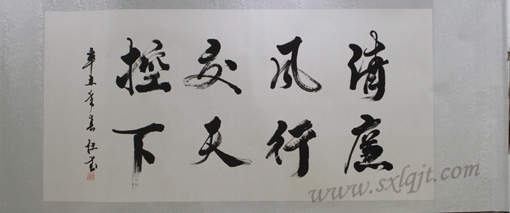 清风交控
廉行天下
辛丑年春
www.sxlqjt.com